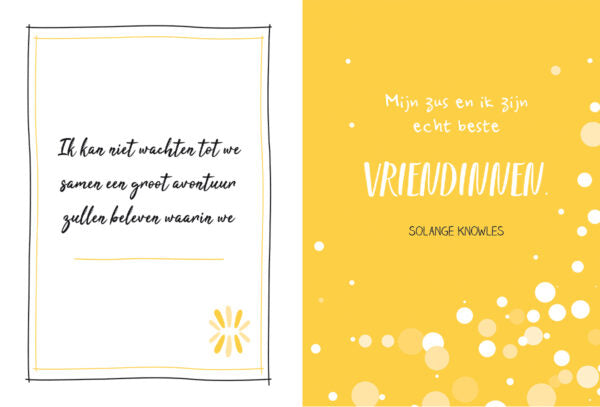 Ik kan niet wachten tot we
samen een groot avontuur
zullen beleven waarin we
Mijn zus en ik zijn
echt beste
VRIENDINNEN.
SOLANGE KNOWLES